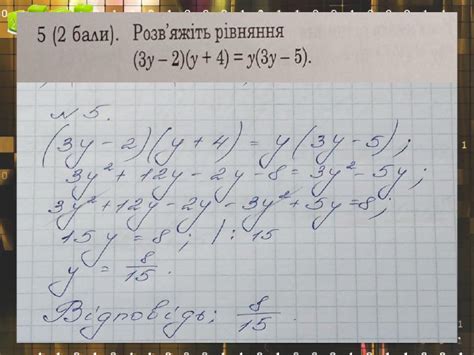 5 (2 бали). Розв'яжіть рівняння
(3y – 2)(y + 4) = y(3y – 5).
№ 5.
(3y - 2)(y + 4) = y(3y - 5);
3y² + 12y - 2y - 8 = 3y² - 5y;
3y² + 12y - 2y - 3y² + 5y = 8;
15y = 8; /: 15
y = 8/15.
Відповідь; 8/15.